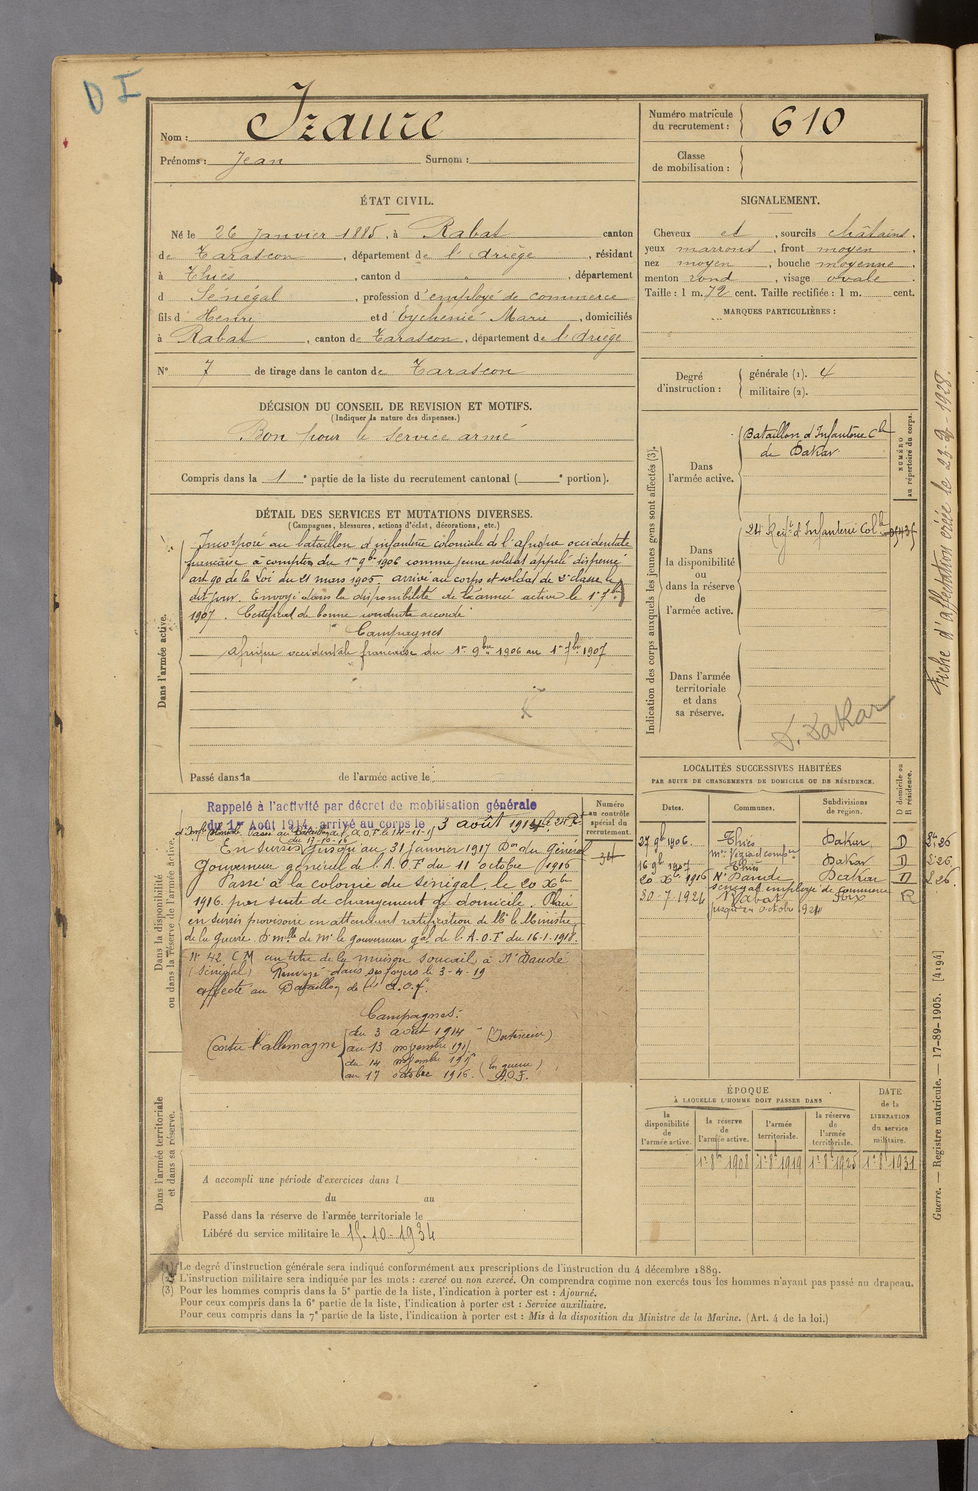 D I
Nom : Izaure
Prénoms : Jean Surnom :
Numéro matricule du recrutement : 610
Classe de mobilisation :
ÉTAT CIVIL.
Né le 26 Janvier 1885, à Rabat canton
de Tarascon, département de l'Ariège, résidant
à Thiès, canton d , département
d Sénégal, profession d'employé de commerce
fils d Henri et d'Eychenié Marie, domiciliés
à Rabat, canton de Tarascon, département de l'Ariège
N° 7 de tirage dans le canton de Tarascon
SIGNALEMENT.
Cheveux et , sourcils châtains,
yeux marrons, front moyen,
nez moyen, bouche moyenne,
menton rond, visage ovale
Taille : 1 m. 72 cent. Taille rectifiée : 1 m. cent.
MARQUES PARTICULIÈRES :
Degré d'instruction : générale (1). 4
militaire (2).
DÉCISION DU CONSEIL DE REVISION ET MOTIFS.
(Indiquer la nature des dispenses.)
Bon pour le service armé
Compris dans la 1e partie de la liste du recrutement cantonal ( e portion).
DÉTAIL DES SERVICES ET MUTATIONS DIVERSES.
(Campagnes, blessures, actions d'éclat, décorations, etc.)
Dans l'armée active.
Incorporé au bataillon d'infanterie coloniale de l'afrique occidentale
française à compter du 1er 9bre 1906 comme jeune soldat appelé dispensé
art 90 de la loi du 21 mars 1905, arrivé au corps et soldat de 2e classe le
dit jour. Envoyé dans la disponibilité de l'armée active le 1er 7bre
1907. Certificat de bonne conduite accordé
Campagnes
afrique occidentale française du 1er 9bre 1906 au 1er 7bre 1907
Passé dans la de l'armée active le
Indication des corps auxquels les jeunes gens sont affectés (3).
NUMÉRO au répertoire du corps.
Dans l'armée active.
Bataillon d'Infanterie Cle
de Dakar
Dans la disponibilité ou dans la réserve de l'armée active.
24 Régt d'Infanterie Colle
Dans l'armée territoriale et dans sa réserve.
D. Dakar
Fiche d'affectation créée le 23-9-1928.
Dans la disponibilité ou dans la réserve de l'armée active.
Numéro au contrôle spécial du recrutement.
34
Rappelé à l'activité par décret de mobilisation générale
du 1er Août 1914, arrivé au corps le 3 août 1914
En sursis jusqu'au 31 janvier 1917 Don du Général
Gouverneur général de l'A.O.F du 11 octobre 1916
Passé à la colonie du Sénégal, le 20 Xbre
1916 par suite de changement de domicile. Placé
en sursis provisoire en attendant ratification de Mr le Ministre
de la Guerre. D. mlle de Mr le gouverneur gal de l'A.O.F du 16-1-1918.
N° 42 C.M au titre de la maison Soucail à N'Daudé
(Sénégal) Renvoyé dans ses foyers le 3-4-19
affecté au Bataillon de l'A.O.F.
Campagnes :
Contre l'allemagne
du 3 août 1914
au 13 novembre 1915 (Intérieur)
du 14 novembre 1915
au 17 octobre 1916. (En guerre) A.O.F.
LOCALITÉS SUCCESSIVES HABITÉES
PAR SUITE DE CHANGEMENTS DE DOMICILE OU DE RÉSIDENCE.
D domicile ou R résidence.
Dates. Communes. Subdivisions de région.
27 9b 1906. Thiès Dakar D
16 9b 1907 Thiès Dakar D
20 Xbre 1916 N'Daudé Dakar D
Sénégal employé de commerce
30-7-1924 Rabat Foix R
jusqu'en octobre 1924
ÉPOQUE
À LAQUELLE L'HOMME DOIT PASSER DANS
la disponibilité de l'armée active. la réserve de l'armée active. l'armée territoriale. la réserve de l'armée territoriale.
DATE de la LIBÉRATION du service militaire.
1er 8bre 1908 1er 8bre 1919 1er 8bre 1925 1er 8bre 1931
Dans l'armée territoriale et dans sa réserve.
A accompli une période d'exercices dans l
du au
Passé dans la réserve de l'armée territoriale le
Libéré du service militaire le 15-10-1934
Guerre. — Registre matricule. — 17-89-1905. [4194]
(1) Le degré d'instruction générale sera indiqué conformément aux prescriptions de l'instruction du 4 décembre 1889.
(2) L'instruction militaire sera indiquée par les mots : exercé ou non exercé. On comprendra comme non exercés tous les hommes n'ayant pas passé au drapeau.
(3) Pour les hommes compris dans la 5e partie de la liste, l'indication à porter est : Ajourné.
Pour ceux compris dans la 6e partie de la liste, l'indication à porter est : Service auxiliaire.
Pour ceux compris dans la 7e partie de la liste, l'indication à porter est : Mis à la disposition du Ministre de la Marine. (Art. 4 de la loi.)